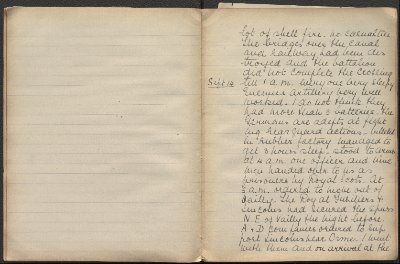 lot of shell fire. no casualties
The bridges over the canal
and railway had been des
troyed and the battalion
did not complete the crossing
till 1 a.m. every one very sleepy
Enemies artillery very well
worked. I do not think they
had more than 2 batteries. The
Germans are adepts at fight
ing rear guard actions.
Sept 14
in rubber factory managed to
get 3 hours sleep. Stood to arms
at 4 a.m. one officer and nine
men handed over to us as
prisoners by Royal Scots. At
5 a.m. ordered to move out of
Vailly. The Royal Fusiliers &
Lincolns had secured the spurs
N.E. of Vailly the night before.
A & D Companies ordered to sup
port Lincolns near Ormes. I went
with them and on arrival at the